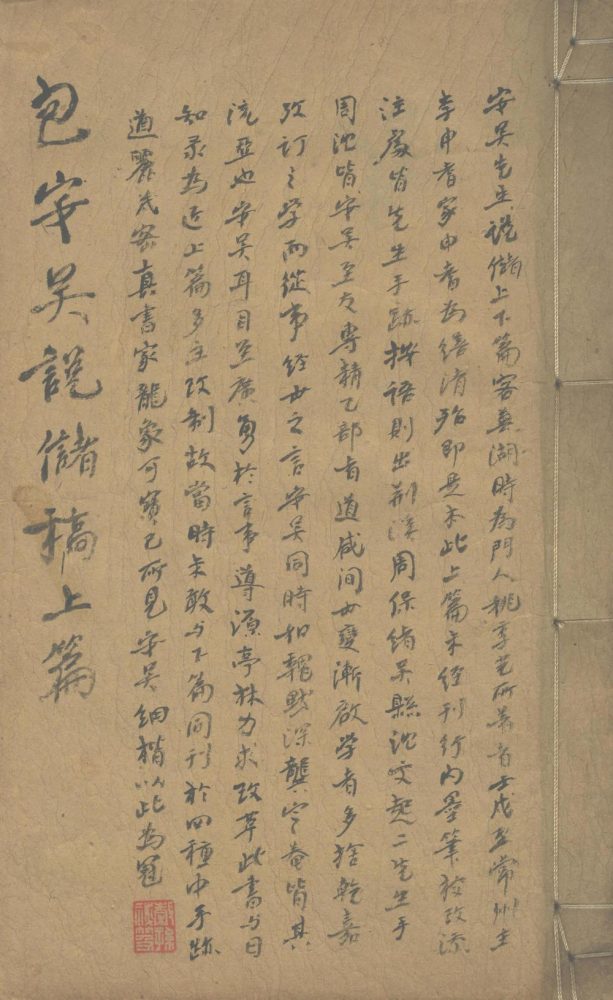 安吳先生說儲上下篇客蕪湖時為門人姚季所者壬戌至常州主
李申耆家申耆為繕清殆即是本此上篇未經刊行內墨筆塗改添
注處皆先生手跡按語則出荊溪周保緒吳縣沈文起二先生手
周沈皆安吳至友專精乙部者道咸间世變漸啟学者多捨乾嘉
攷訂之学而從事經世之言安吳同時如魏默深龔定菴皆其
流亞也安吳耳目至廣勇於言事導源亭林力求改革此書与日
知录為近上篇多主改制故當時未敢与下篇同刊於四種中手跡
遒麗茂密真書家龍象可寶已所見安吳細楷以此為冠
包安吳說儲稿上篇